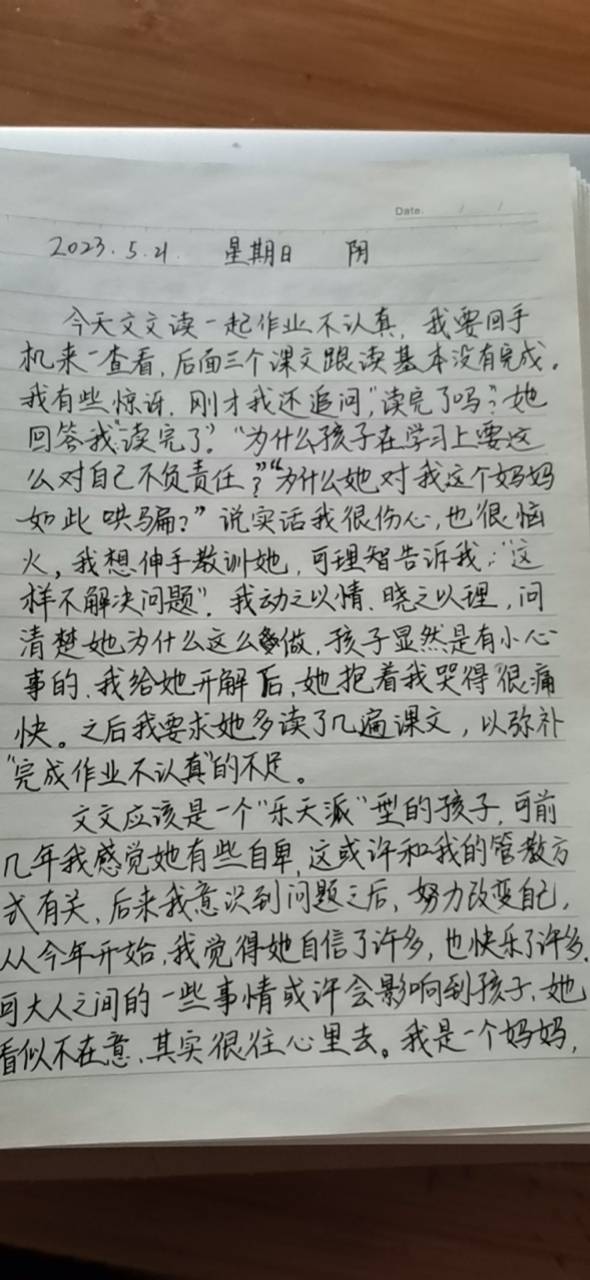 Date.    /    /
2023.5.21.  星期日  阴
今天文文读一起作业不认真,我要回手
机来一查看,后面三个课文跟读基本没有完成。
我有些惊讶.刚才我还追问,"读完了吗?"她
回答我"读完了"."为什么孩子在学习上要这
么对自己不负责任?""为什么她对我这个妈妈
如此哄骗?"说实话我很伤心,也很恼
火,我想伸手教训她,可理智告诉我:"这
样不解决问题".我动之以情、晓之以理,问
清楚她为什么这么做,孩子显然是有小心
事的、我给她开解后,她抱着我哭得很痛
快。之后我要求她多读了几遍课文,以弥补
"完成作业不认真"的不足。
文文应该是一个"乐天派"型的孩子,可前
几年我感觉她有些自卑,这或许和我的管教方
式有关,后来我意识到问题之后,努力改变自己,
从今年开始,我觉得她自信了许多,也快乐了许多.
可大人之间的一些事情或许会影响到孩子,她
看似不在意,其实很往心里去。我是一个妈妈,